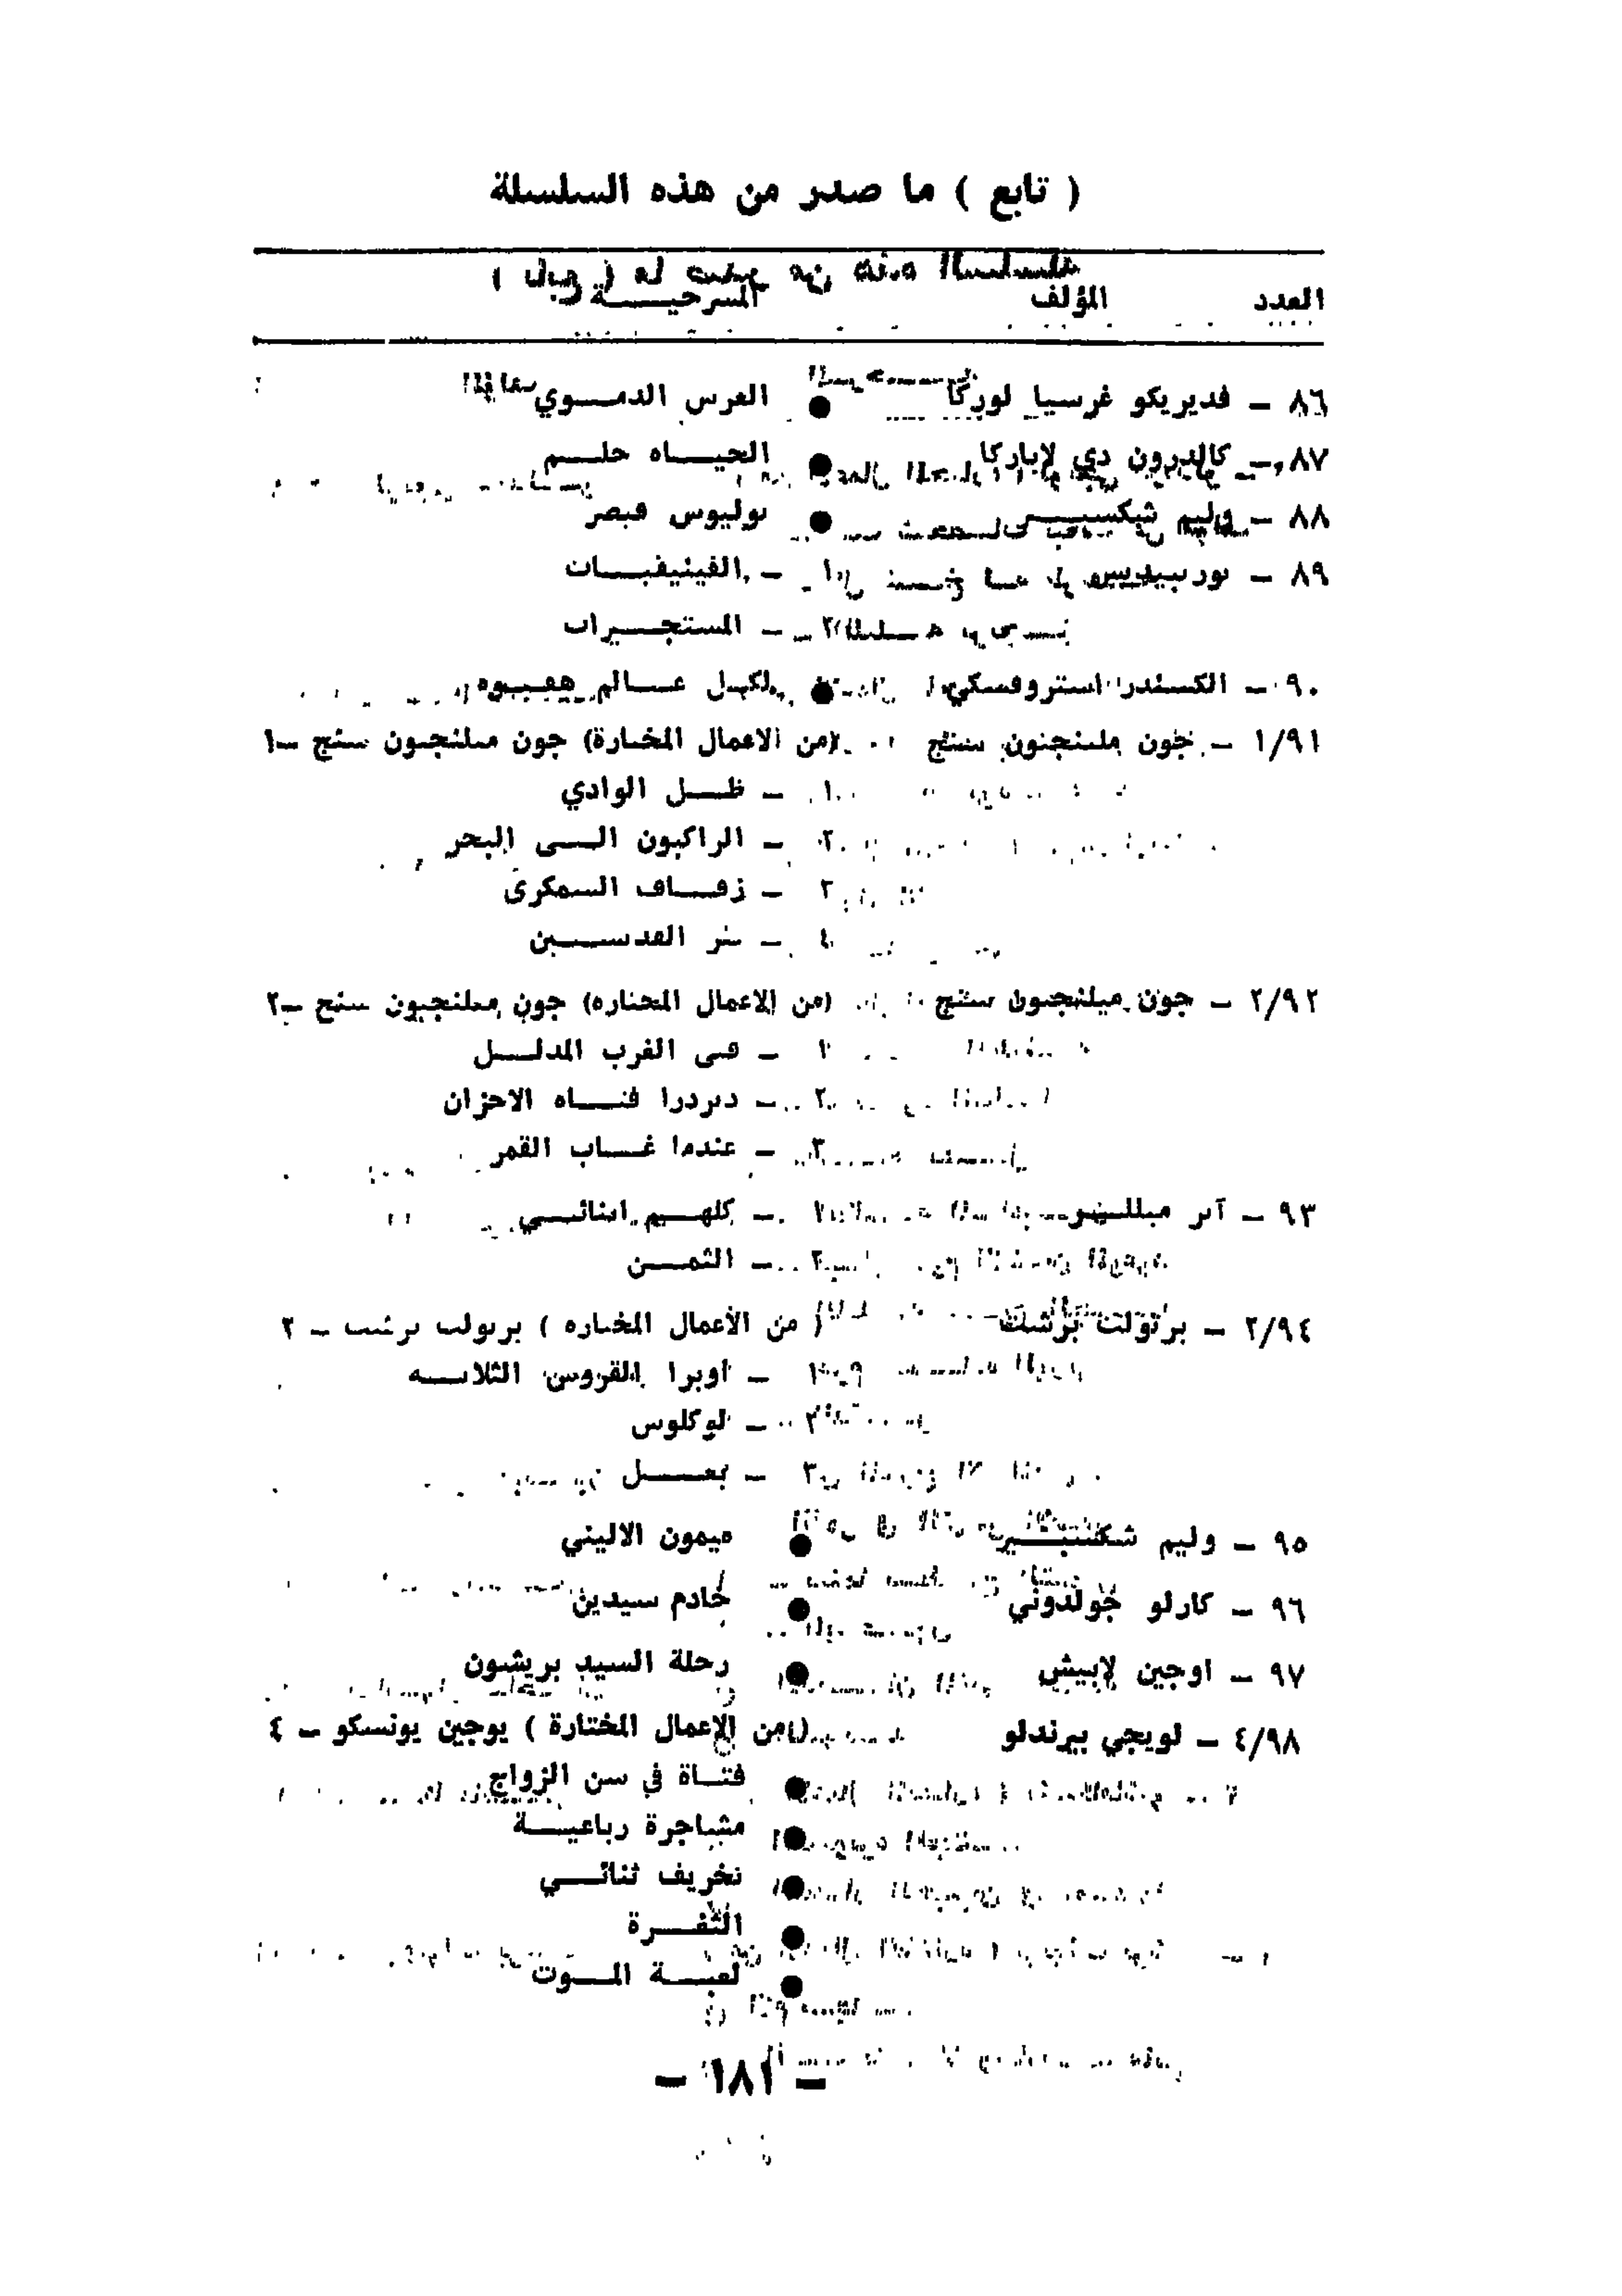 ( تابع ) ما صدر من هذه السلسلة
العدد المؤلف المسرحيـــة
٨٦ – فديريكو غرسيا لوركا ● العرس الدمـــوي
٨٧ – كالدرون دي لاباركا ● الحيـــاه حلـــم
٨٨ – وليم شيكسبيـــر ● يوليوس قيصر
٨٩ – يوربيديس ١ – الفينيقيـــات
٢ – المستجـــيرات
٩٠ – الكسندر استروفسكي ● لكـــل عـــالم هفـــوه
١/٩١ – جون ملينجتون سنج (من الاعمال المختارة) جون ميلنجتون سنج –١
١ – ظـــل الوادي
٢ – الراكبون الـــى البحر
٣ – زفـــاف السمكرى
٤ – بئر القديســـين
٢/٩٢ – جون ميلنجتون سنج (من الاعمال المختاره) جون ميلنجتون سنج –٢
١ – فتى الغرب المدلـــل
٢ – ديردرا فتـــاه الاحزان
٣ – عندما غـــاب القمر
٩٣ – آثر ميللـــر ١ – كلهـــم ابنائـــي
٢ – الثمـــن
٢/٩٤ – برتولت برشت ( من الأعمال المختاره ) برتولت برشت – ٢
١ – أوبرا القروش الثلاثـــه
٢ – لوكلوس
٣ – بعـــل
٩٥ – وليم شكسبـــير ● تيمون الاثيني
٩٦ – كارلو جولدوني ● خادم سيدين
٩٧ – اوجين لابيش ● رحلة السيد بريشون
٤/٩٨ – لويجي بيرندلو (من الاعمال المختارة ) يوجين يونسكو – ٤
● فتـــاة في سن الزواج
● مشاجرة رباعيـــة
● تخريف ثنائـــي
● الثغـــرة
● لعبـــة المـــوت
– ١٨١ –